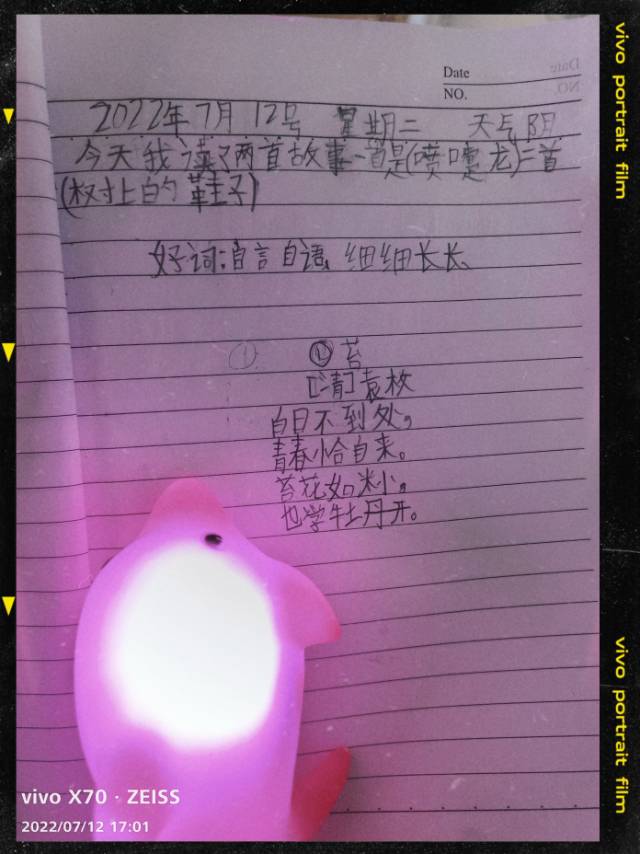 Date
NO.
2022年7月12号 星期二 天气阴
今天我读了两首故事一首是(喷嚏龙)二首
(树上的鞋子)
好词:自言自语、细细长长、
① ⑫苔
[清]袁枚
白日不到处,
青春恰自来。
苔花如米小。
也学牡丹开。
vivo portrait film
vivo portrait film
vivo X70 · ZEISS
2022/07/12 17:01